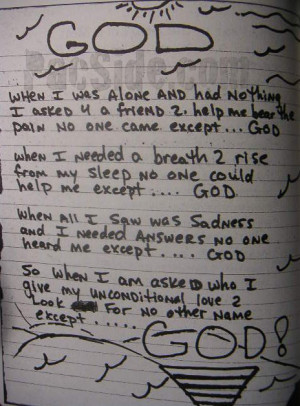 GOD
PacSide.com
WHEN I WAS ALONE AND HAD NOTHING
I ASKED 4 A FRIEND 2. HELP ME BEAR THE
PAIN NO ONE CAME EXCEPT... GOD
WHEN I NEEDED A BREATH 2 RISE
FROM MY SLEEP NO ONE COULD
HELP ME EXCEPT .... GOD
WHEN ALL I SAW WAS SADNESS
AND I NEEDED ANSWERS NO ONE
HEARD ME EXCEPT .... GOD
SO WHEN I AM ASKED WHO I
GIVE MY UNCONDITIONAL LOVE 2
LOOK FOR NO OTHER NAME
EXCEPT .....
GOD!